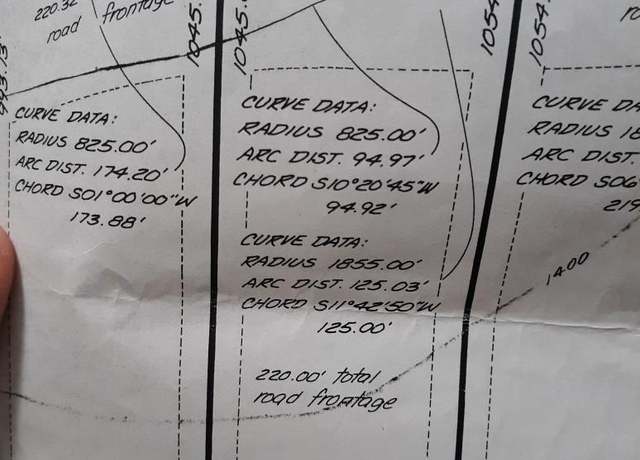 220.32
road frontage
1045.
1045.
1054
1054.
CURVE DATA:
RADIUS 825.00'
ARC DIST. 174.20'
CHORD S01°00'00"W
173.88'
CURVE DATA:
RADIUS 825.00'
ARC DIST. 94.97'
CHORD S10°20'45"W
94.92'
CURVE DATA:
RADIUS 1855.00'
ARC DIST. 125.03'
CHORD S11°42'50"W
125.00'
220.00' total
road frontage
CURVE DA
RADIUS 18
ARC DIST.
CHORD S06°
219
1400